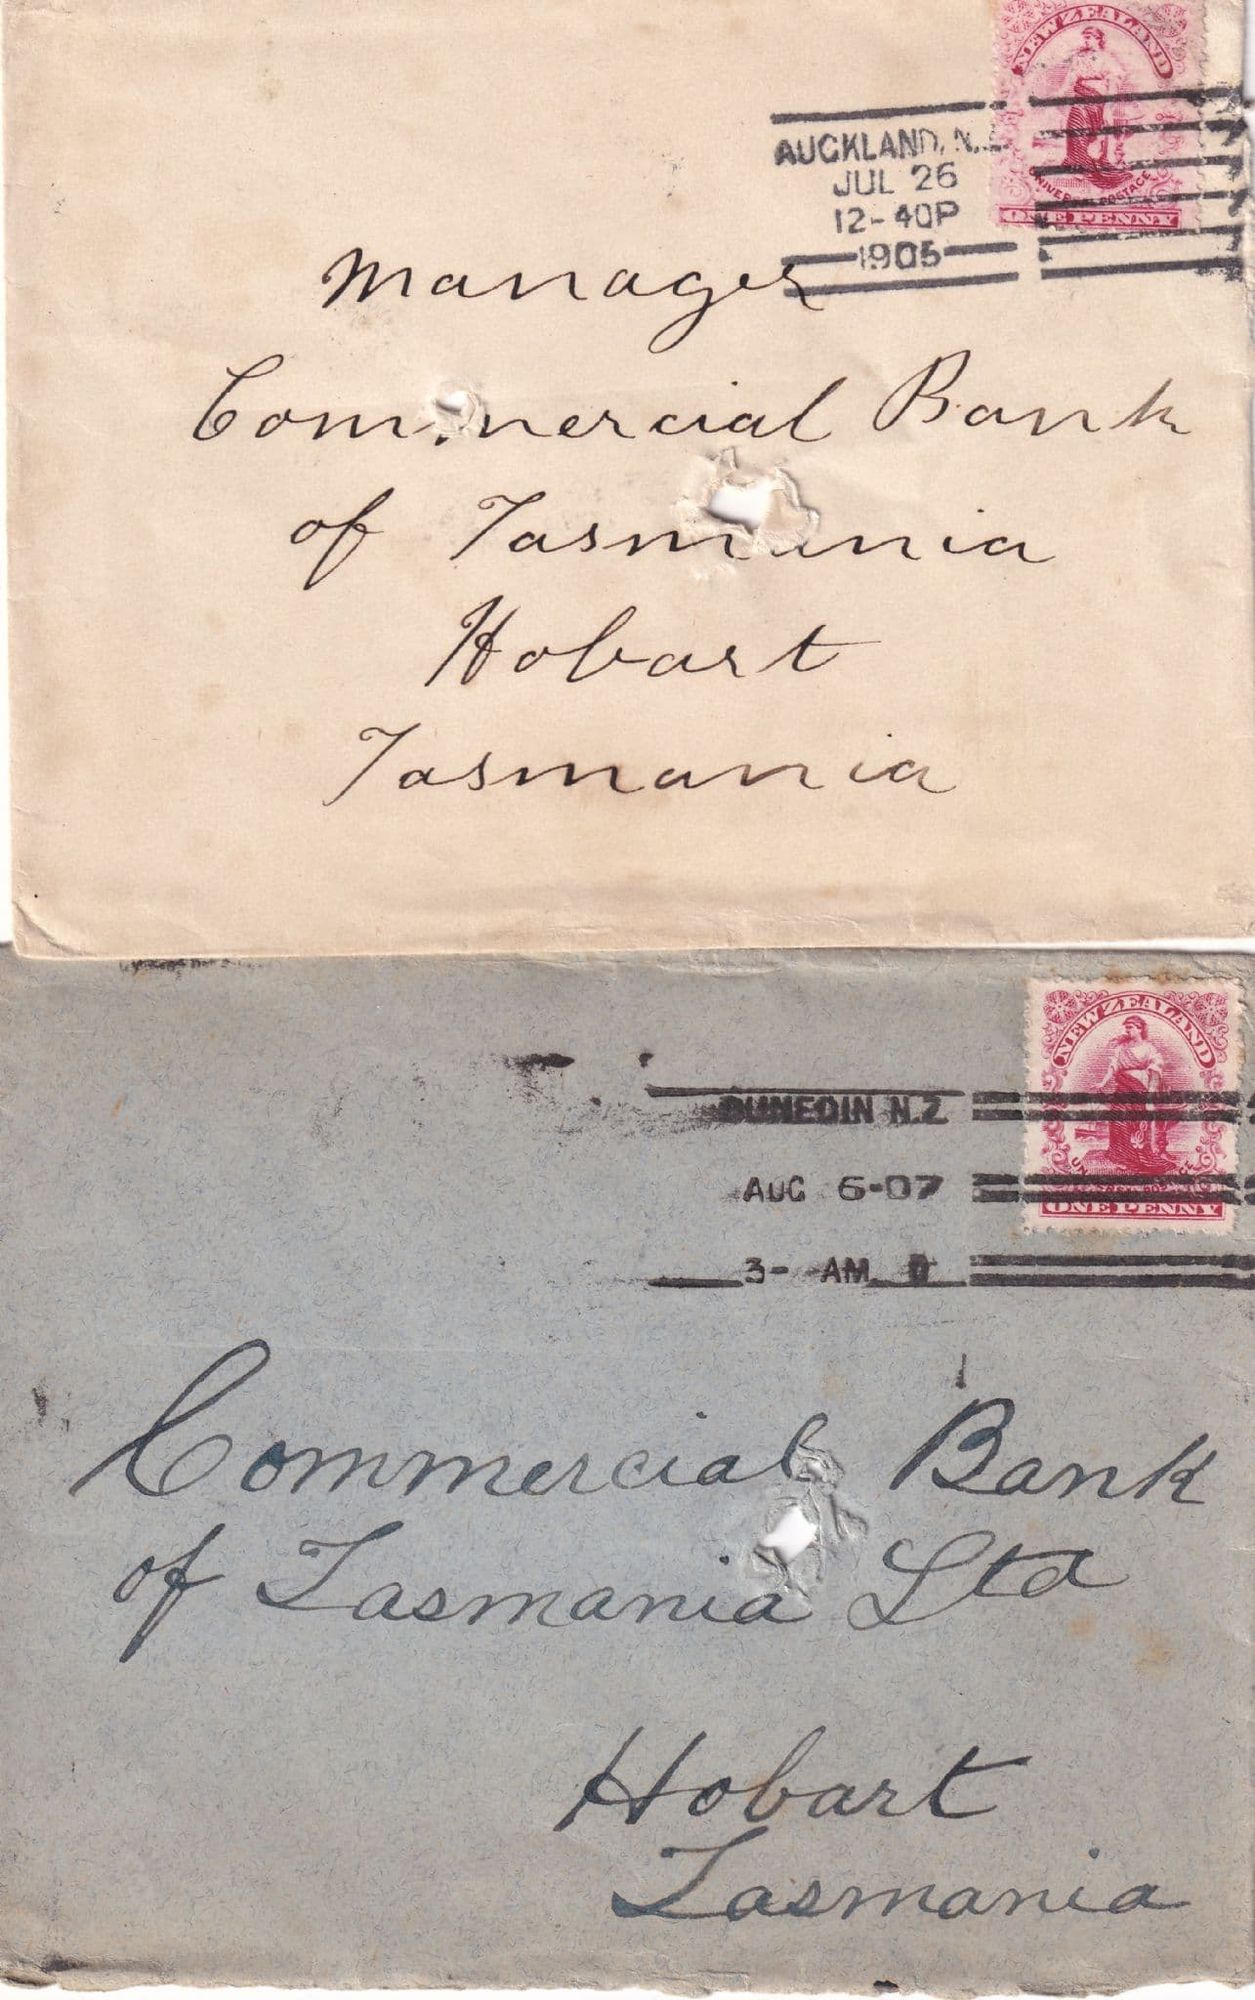 NEW ZEALAND
UNIVERSAL POSTAGE
ONE PENNY
AUCKLAND, N.Z.
JUL 26
12-40P
1905
Manager
Commercial Bank
of Tasmania
Hobart
Tasmania
NEW ZEALAND
ONE PENNY
DUNEDIN N.Z
AUG 6-07
3- AM
Commercial Bank
of Tasmania Ltd
Hobart
Tasmania